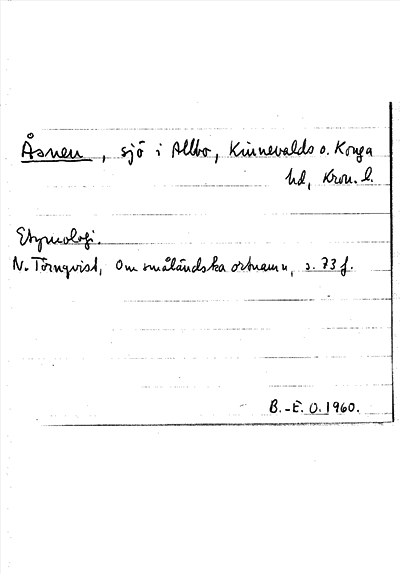 Åsnen, sjö i Allbo, Kinnevalds o. Konga
hd, Kron. l.
Etymologi.
N. Törnqvist, Om småländska ortnamn, s. 73 f.
B.-E. O. 1960.